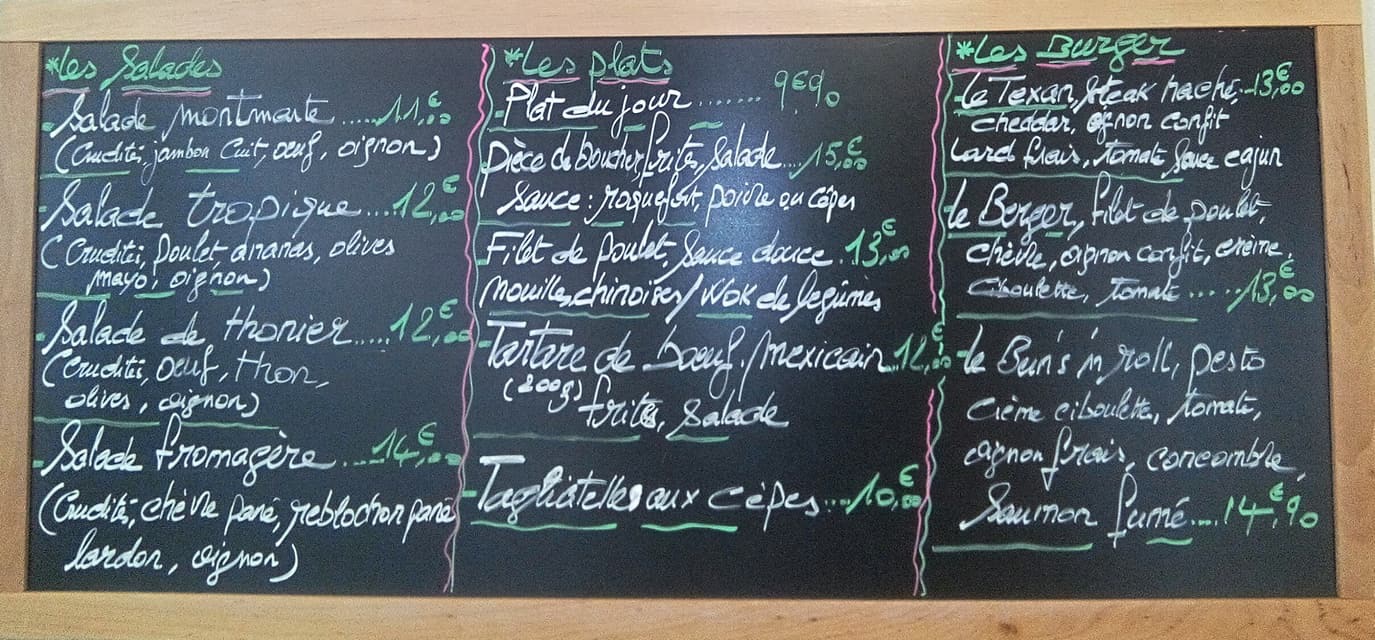 *Les Salades
- Salade montmarte ..... 11,€00
(Crudités, jambon cuit, oeuf, oignon)
- Salade tropique .... 12,€00
(Crudités, Poulet, ananas, olives
mayo, oignon)
- Salade de thonier ..... 12,€00
(Crudités, oeuf, thon,
olives, oignon)
- Salade fromagère .... 14,€00
(Crudités, chèvre pané, reblochon pané
lardon, oignon)
*Les plats
- Plat du jour ....... 9€90
Pièce de boucher, frites, salade... 15,€00
Sauce : roquefort, poivre ou cèpes
- Filet de poulet, sauce douce . 13,€00
nouilles chinoises / Wok de légumes
- Tartare de boeuf, mexicain .. 12,€00
(200g) frites, salade
- Tagliatelles aux cèpes ... 10,€00
*Les Burger
- le Texan, Steak haché, - 13,€00
cheddar, ognon confit
lard frais, tomate sauce cajun
- le Berger, filet de poulet,
chèvre, oignon confit, crème,
ciboulette, tomate ..... 13,€00
- le Bun's 'n roll, pesto
Crème ciboulette, tomate,
oignon frais, concombre,
Saumon fumé .... 14,€90